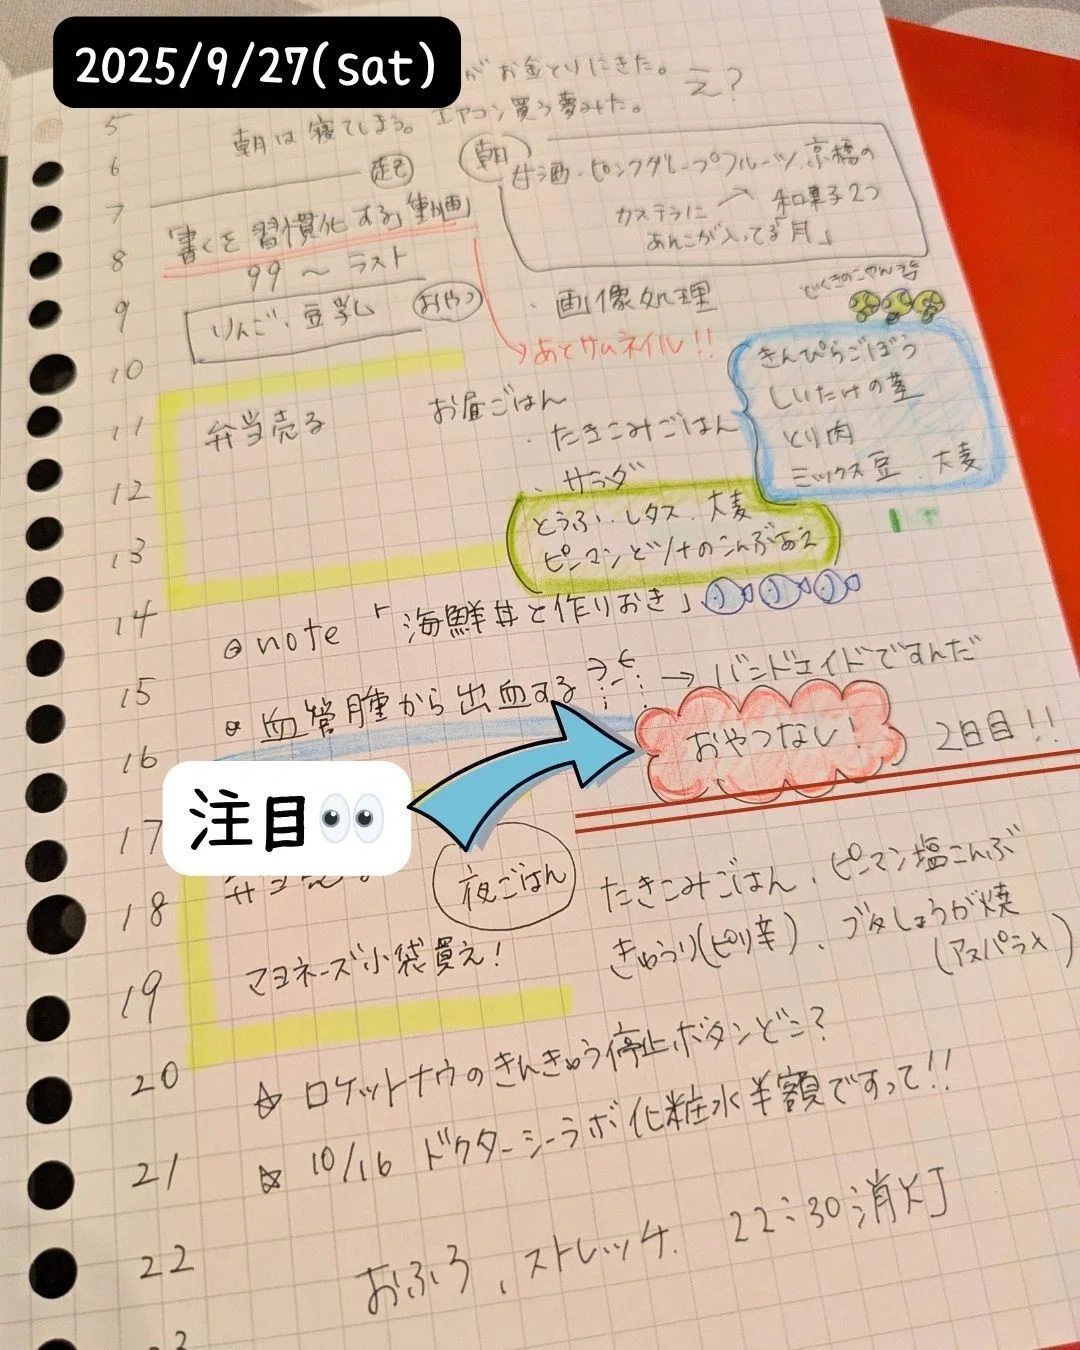 2025/9/27(sat)
がお金とりにきた。
え?
朝は寝てしまう。エアコン買う夢みた。
5
6
起
朝
甘酒・ピンクグレープフルーツ、京橋の
和菓子2つ
カステラに
あんこが入ってる「月」
7
「書くを習慣化する」動画
8
99〜ラスト
9
りんご、豆乳
おやつ
・画像処理
あとサムネイル!!
10
きんぴらごぼう
しいたけの茎
とり肉
ミックス豆、大麦
11
弁当売る
お昼ごはん
・たきこみごはん
12
・サラダ
とうふ・レタス、大麦
ピーマンとツナのこんぶあえ
13
14
note「海鮮丼と作りおき」
15
血管腫から出血する
→バンドエイドですんだ
16
おやつなし!
2日目!!
注目👀
17
18
弁当売る
夜ごはん
たきこみごはん、ピーマン塩こんぶ
きゅうり(ピリ辛)、ブタしょうが焼
(アスパラ×)
19
マヨネーズ小袋買え!
20
☆ロケットナウのきんきゅう停止ボタンどこ?
21
☆10/16 ドクターシーラボ化粧水半額ですって!!
22
おふろ、ストレッチ、22:30消灯